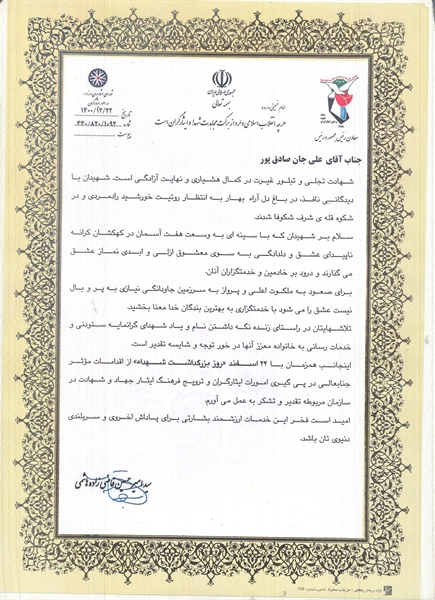 جمهوری اسلامی ایران
بسمه تعالی
تاریخ ۱۴۰۰/۱۲/۲۲
شماره ۴۴۰/۸۲۰/۱۰۹۲
پیوست
امام خمینی (ره):
هر چه انقلاب اسلامی دارد از برکت مجاهدت شهدا و ایثارگران است
معاون رئیس جمهور و رئیس
جناب آقای علی جان صادق پور
شهادت تجلی و تبلور غیرت در کمال هشیاری و نهایت آزادگی است. شهیدان با
دیدگانی نافذ، در باغ دل آراء بهار به انتظار روئیت خورشید رادمردی و در
شکوه قله ی شرف شکوفا شدند.
سلام بر شهیدان که با سینه ای به وسعت هفت آسمان در کهکشان کرانه
ناپیدای عشق و دلدادگی به سوی معشوق ازلی و ابدی نماز عشق
می گذارند و درود بر خادمین و خدمتگزاران آنان.
برای صعود به ملکوت اعلی و پرواز به سرزمین جاودانگی نیازی به پر و بال
نیست عشق را می شود با خدمتگزاری به بهترین بندگان خدا معنا بخشید.
تلاشهایتان در راستای زنده نگه داشتن نام و یاد شهدای گرانمایه ستودنی و
خدمات رسانی به خانواده معزز آنها در خور توجه و شایسته تقدیر است.
اینجانب همزمان با ۲۲ اسفند «روز بزرگداشت شهداء» از اقدامات مؤثر
جنابعالی در پی گیری امورات ایثارگران و ترویج فرهنگ ایثار جهاد و شهادت در
سازمان مربوطه تقدیر و تشکر به عمل می آورم.
امید است فخر این خدمات ارزشمند بشارتی برای پاداش اخروی و سربلندی
دنیوی تان باشد.
سید امیرحسین قاضی زاده هاشمی